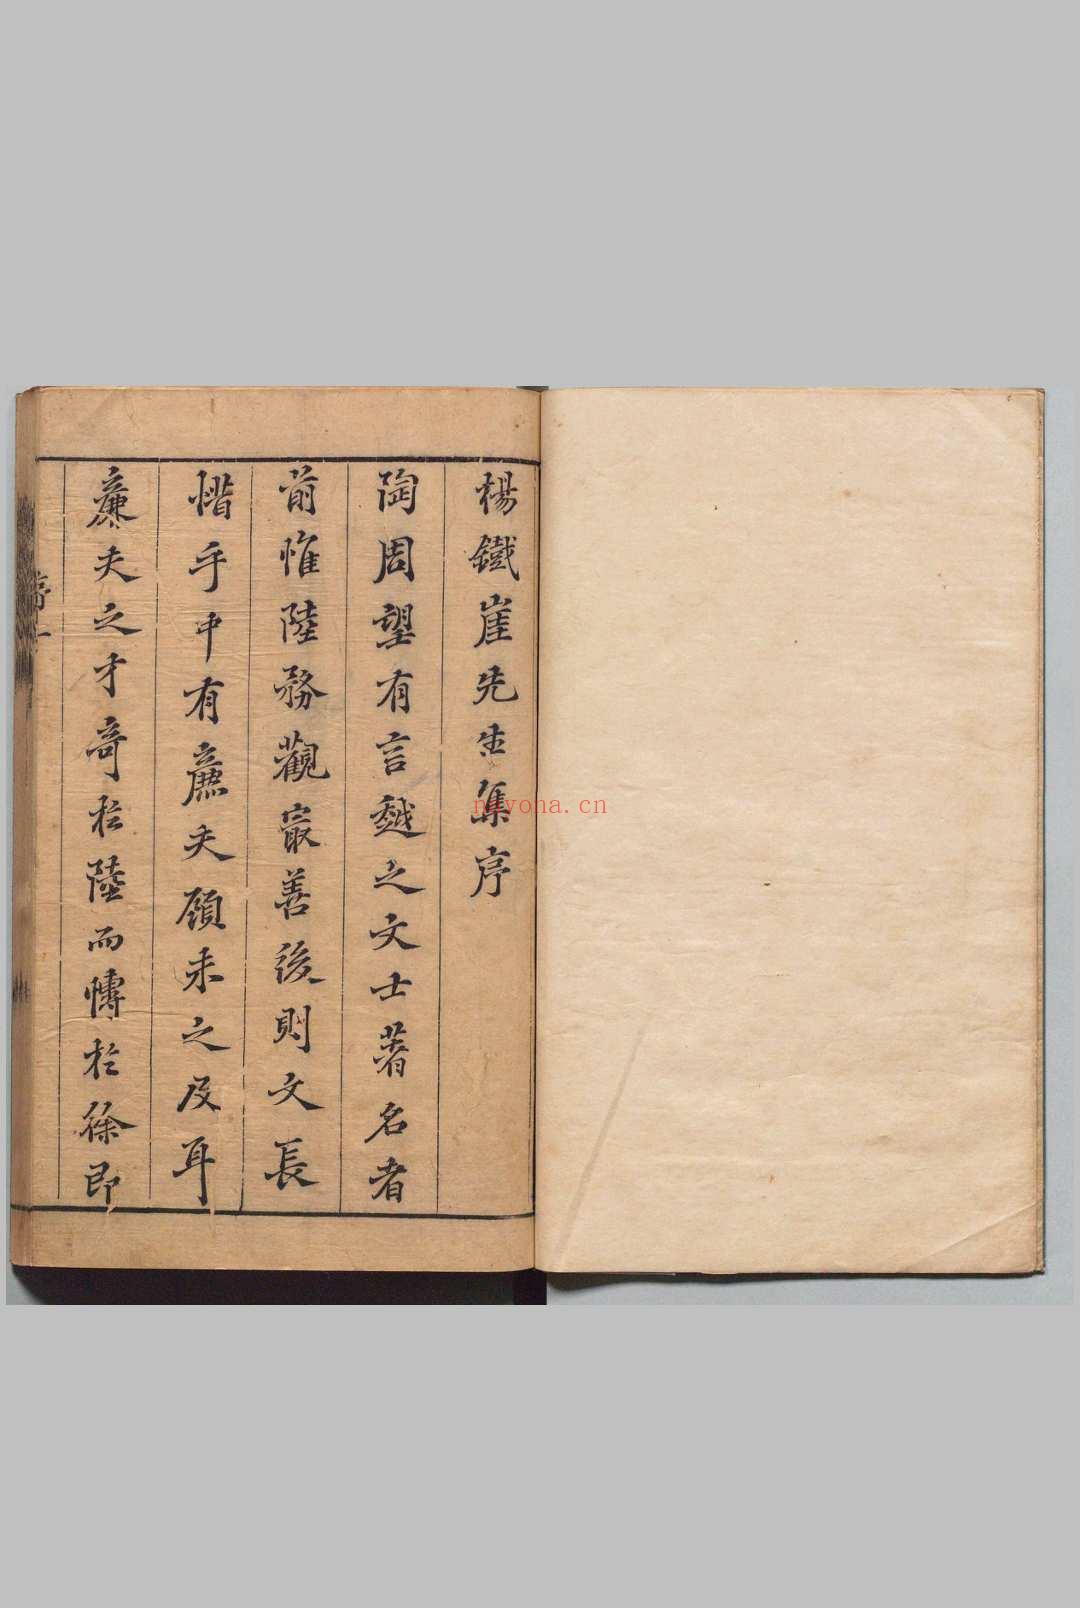 楊鐵崖先生集序
陶周望有言越之文士著名者
前惟陸務觀㝡善後則文長
惜乎中有廉夫顧未之及耳
廉夫之才奇於陸而愽於徐即
序一
nayona.cn